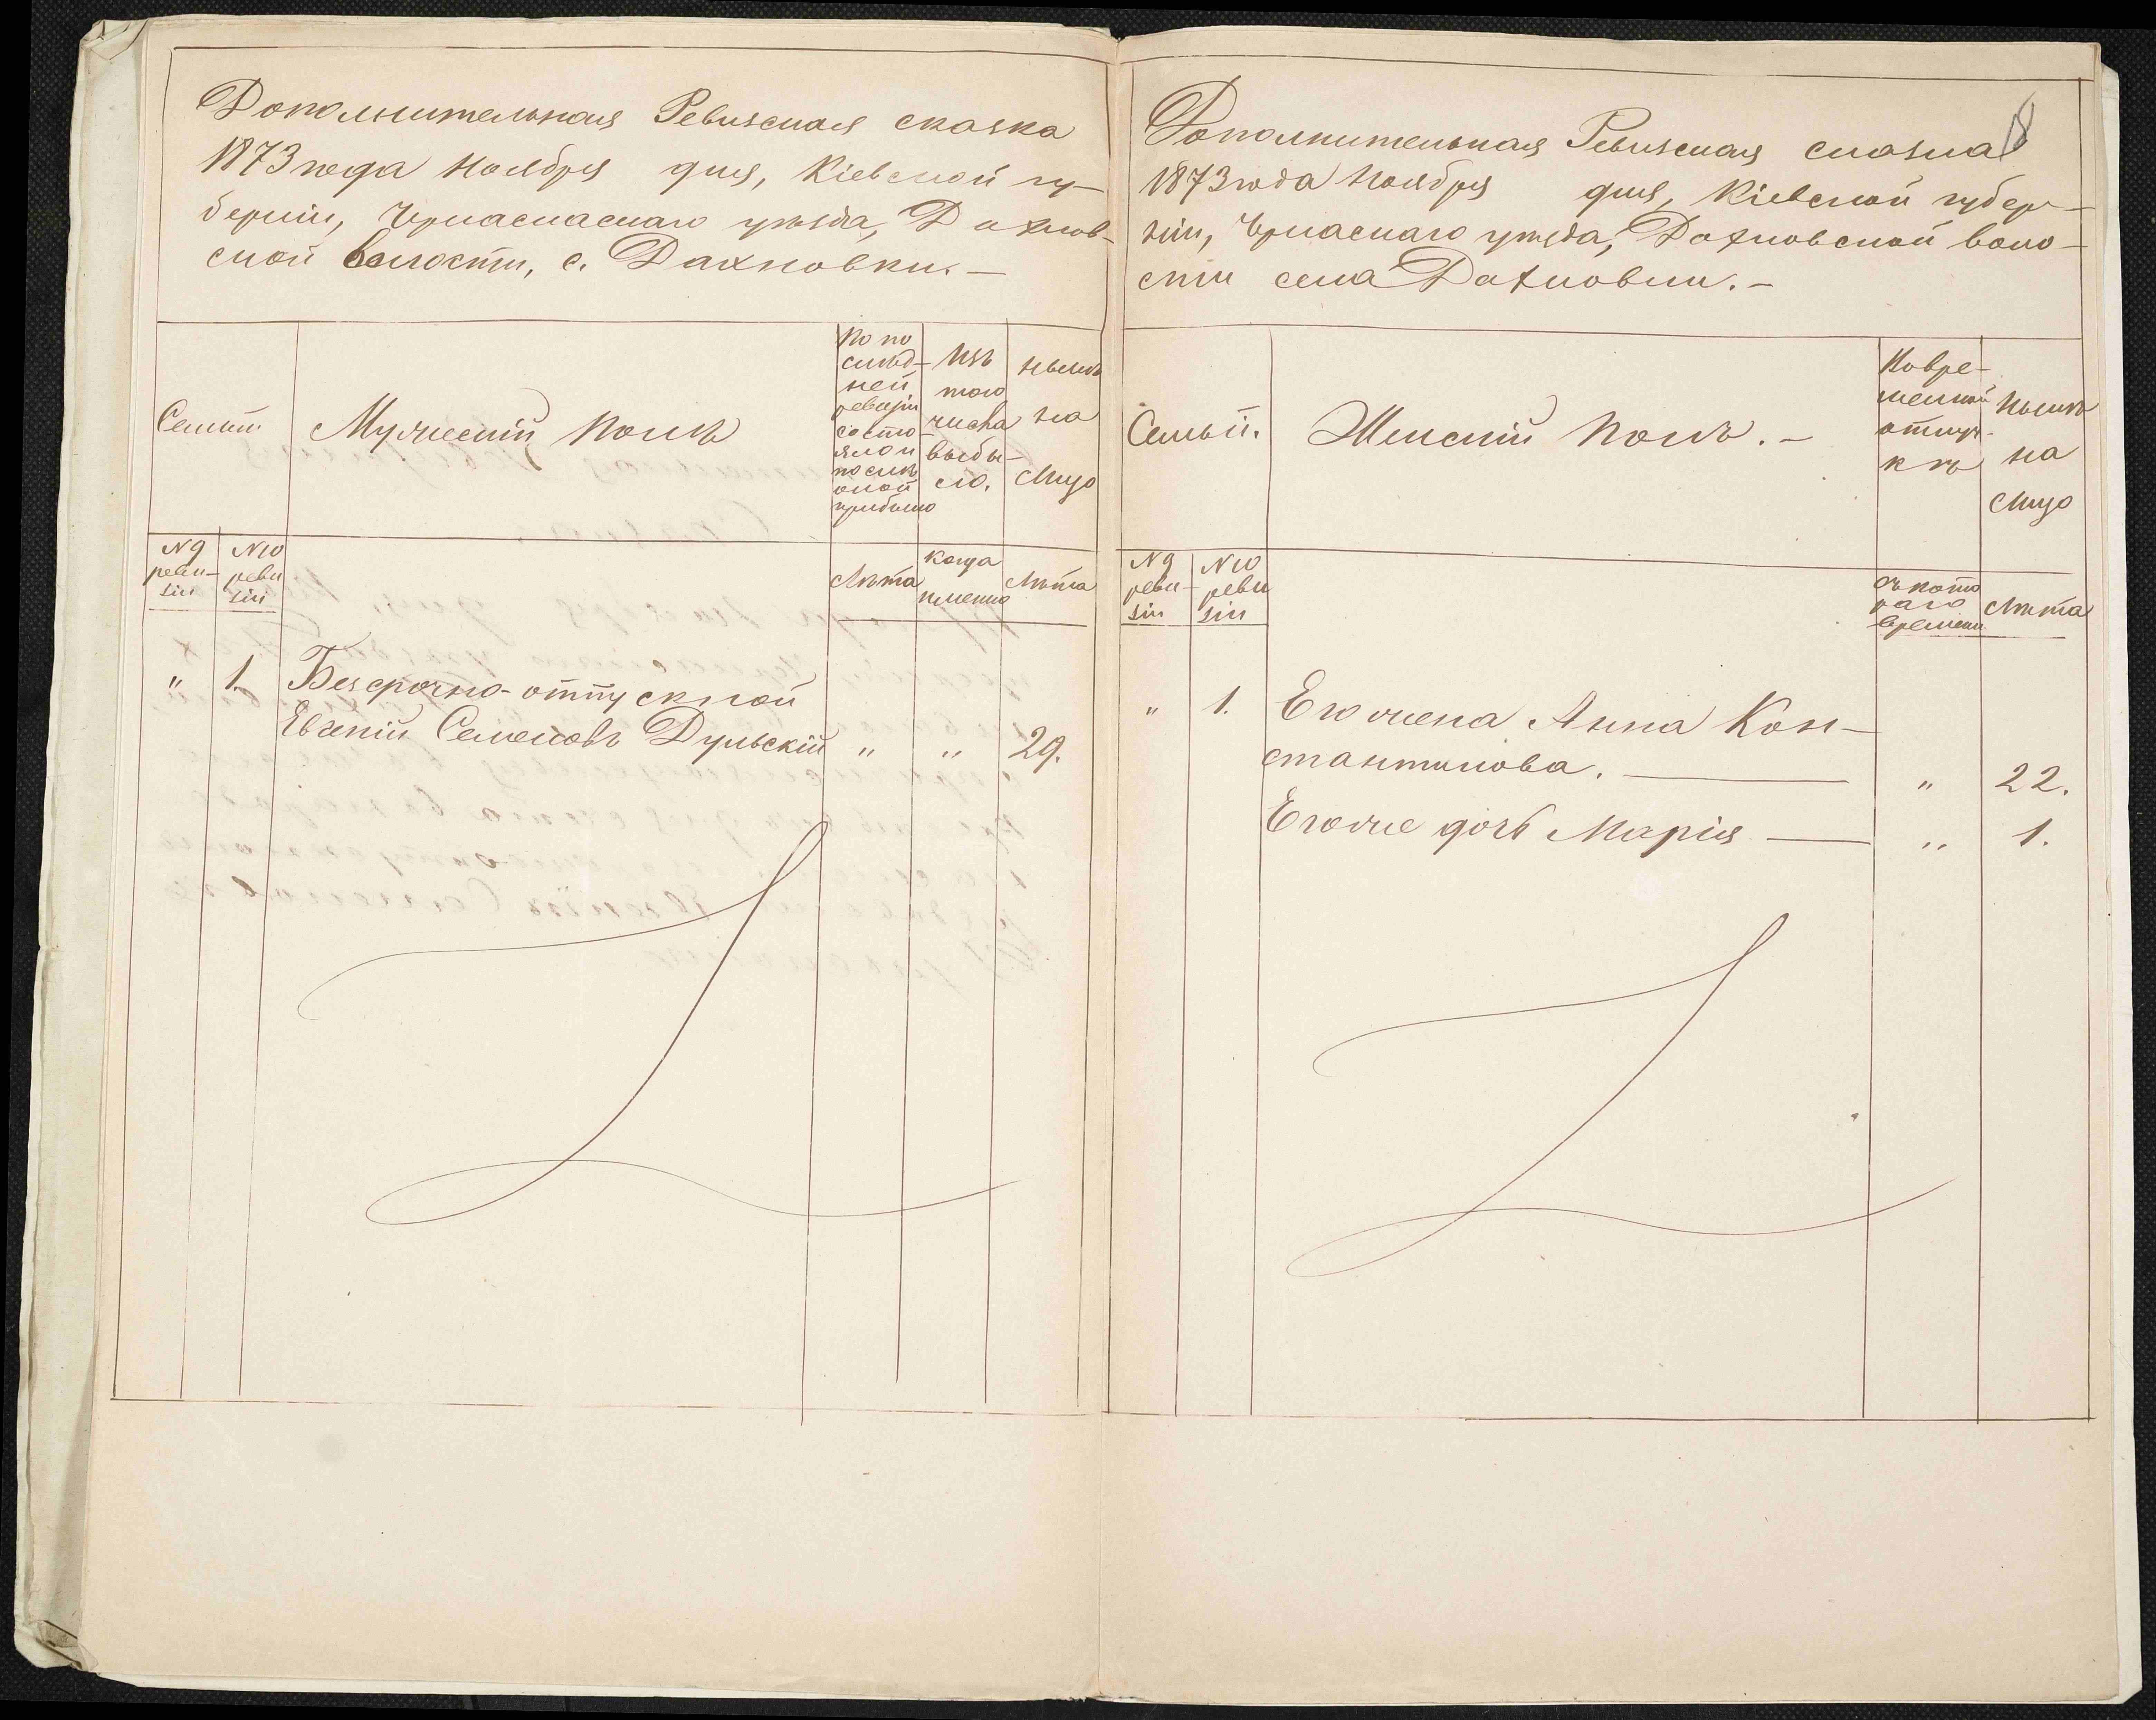 Дополнительная Ревизская сказка
1873 года Ноября дня, Кіевской гу-
берніи, Черкасскаго уѣзда, Дахнов-
ской волости, с. Дахновки. —
Семьи
Мужескій полъ
По по
слѣд-
ней
ревизіи
состо-
яло и
послѣ
оной
прибыло
Изъ
того
числа
выбы-
ло.
Нынѣ
на
лицо
№ 9
реви-
зіи
№ 10
реви
зіи
Лѣта
Когда
именно
Лѣта
" 1. Безсрочно-отпускной
Евгеній Семеновъ Дульскій " " 29.
18
Дополнительная Ревизская сказка
1873 года Ноября дня, Кіевской губер-
ніи, Черкаскаго уѣзда, Дахновской воло-
сти села Дахновки. —
Семьи.
Женскій полъ. —
Во вре-
менной
отлуч-
кѣ
Нынѣ
на
лицо
№ 9
реви-
зіи
№ 10
реви
зіи
Съ кото
раго
времени
Лѣта
" 1. Его жена Анна Кон-
стантинова. — " 22.
Его же дочь Марія — " 1.